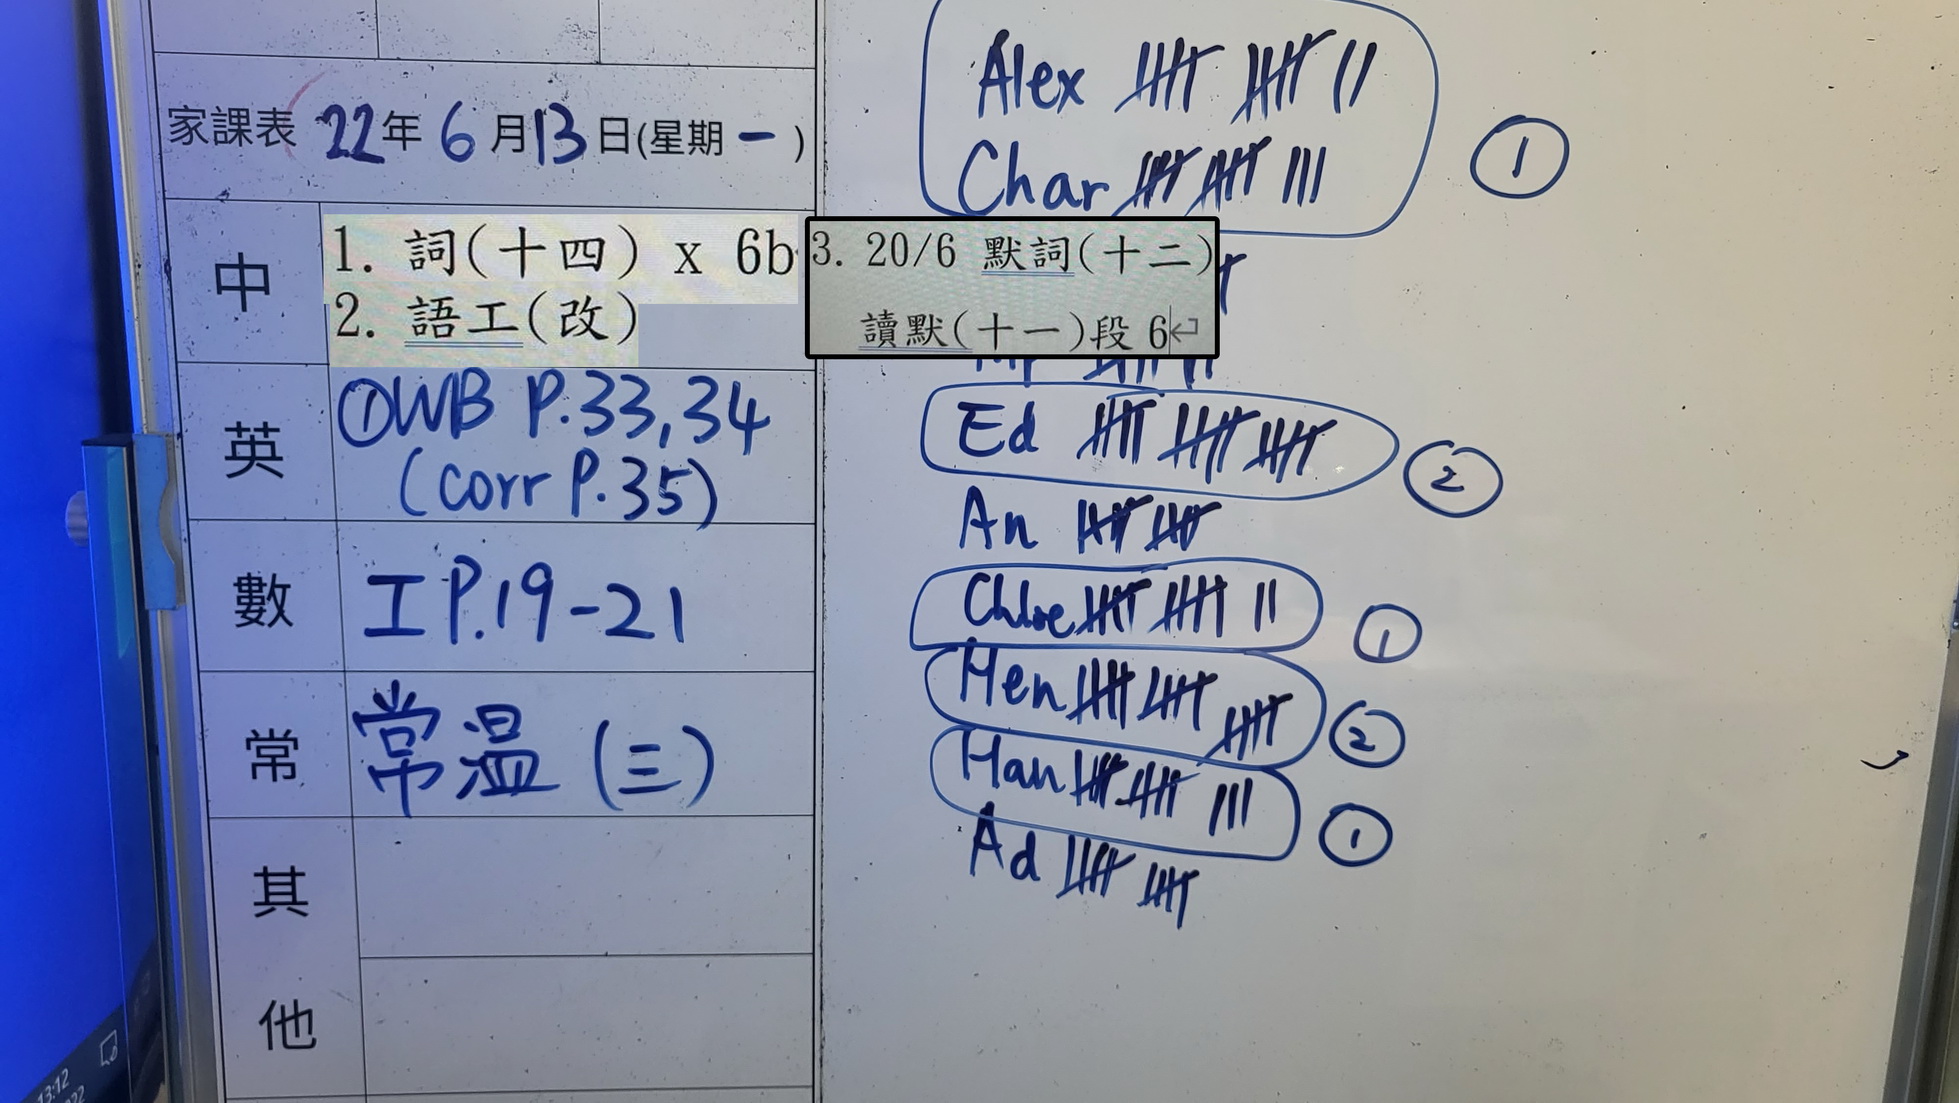 家課表 22年6月13日(星期一)
中
1. 詞(十四) x 6b
2. 語工(改)
3. 20/6 默詞(十二)
讀默(十一)段 6
英
①WB P.33,34
(corr P.35)
數
工P.19-21
常
常溫(三)
其
他
Alex
Char
①
Ed
②
An
Chloe
①
Hen
②
Han
①
Ad
13:12